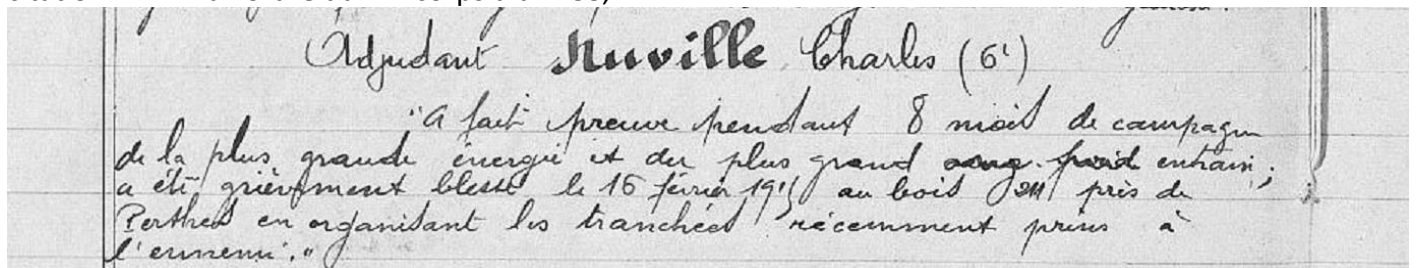 Adjudant Nuville Charles (6e)
"A fait preuve pendant 8 mois de campagne
de la plus grande énergie et du plus grand sang froid entrain;
a été grièvement blessé le 16 février 1915 au bois près de
Perthes en organisant les tranchées récemment prises à
l'ennemi."